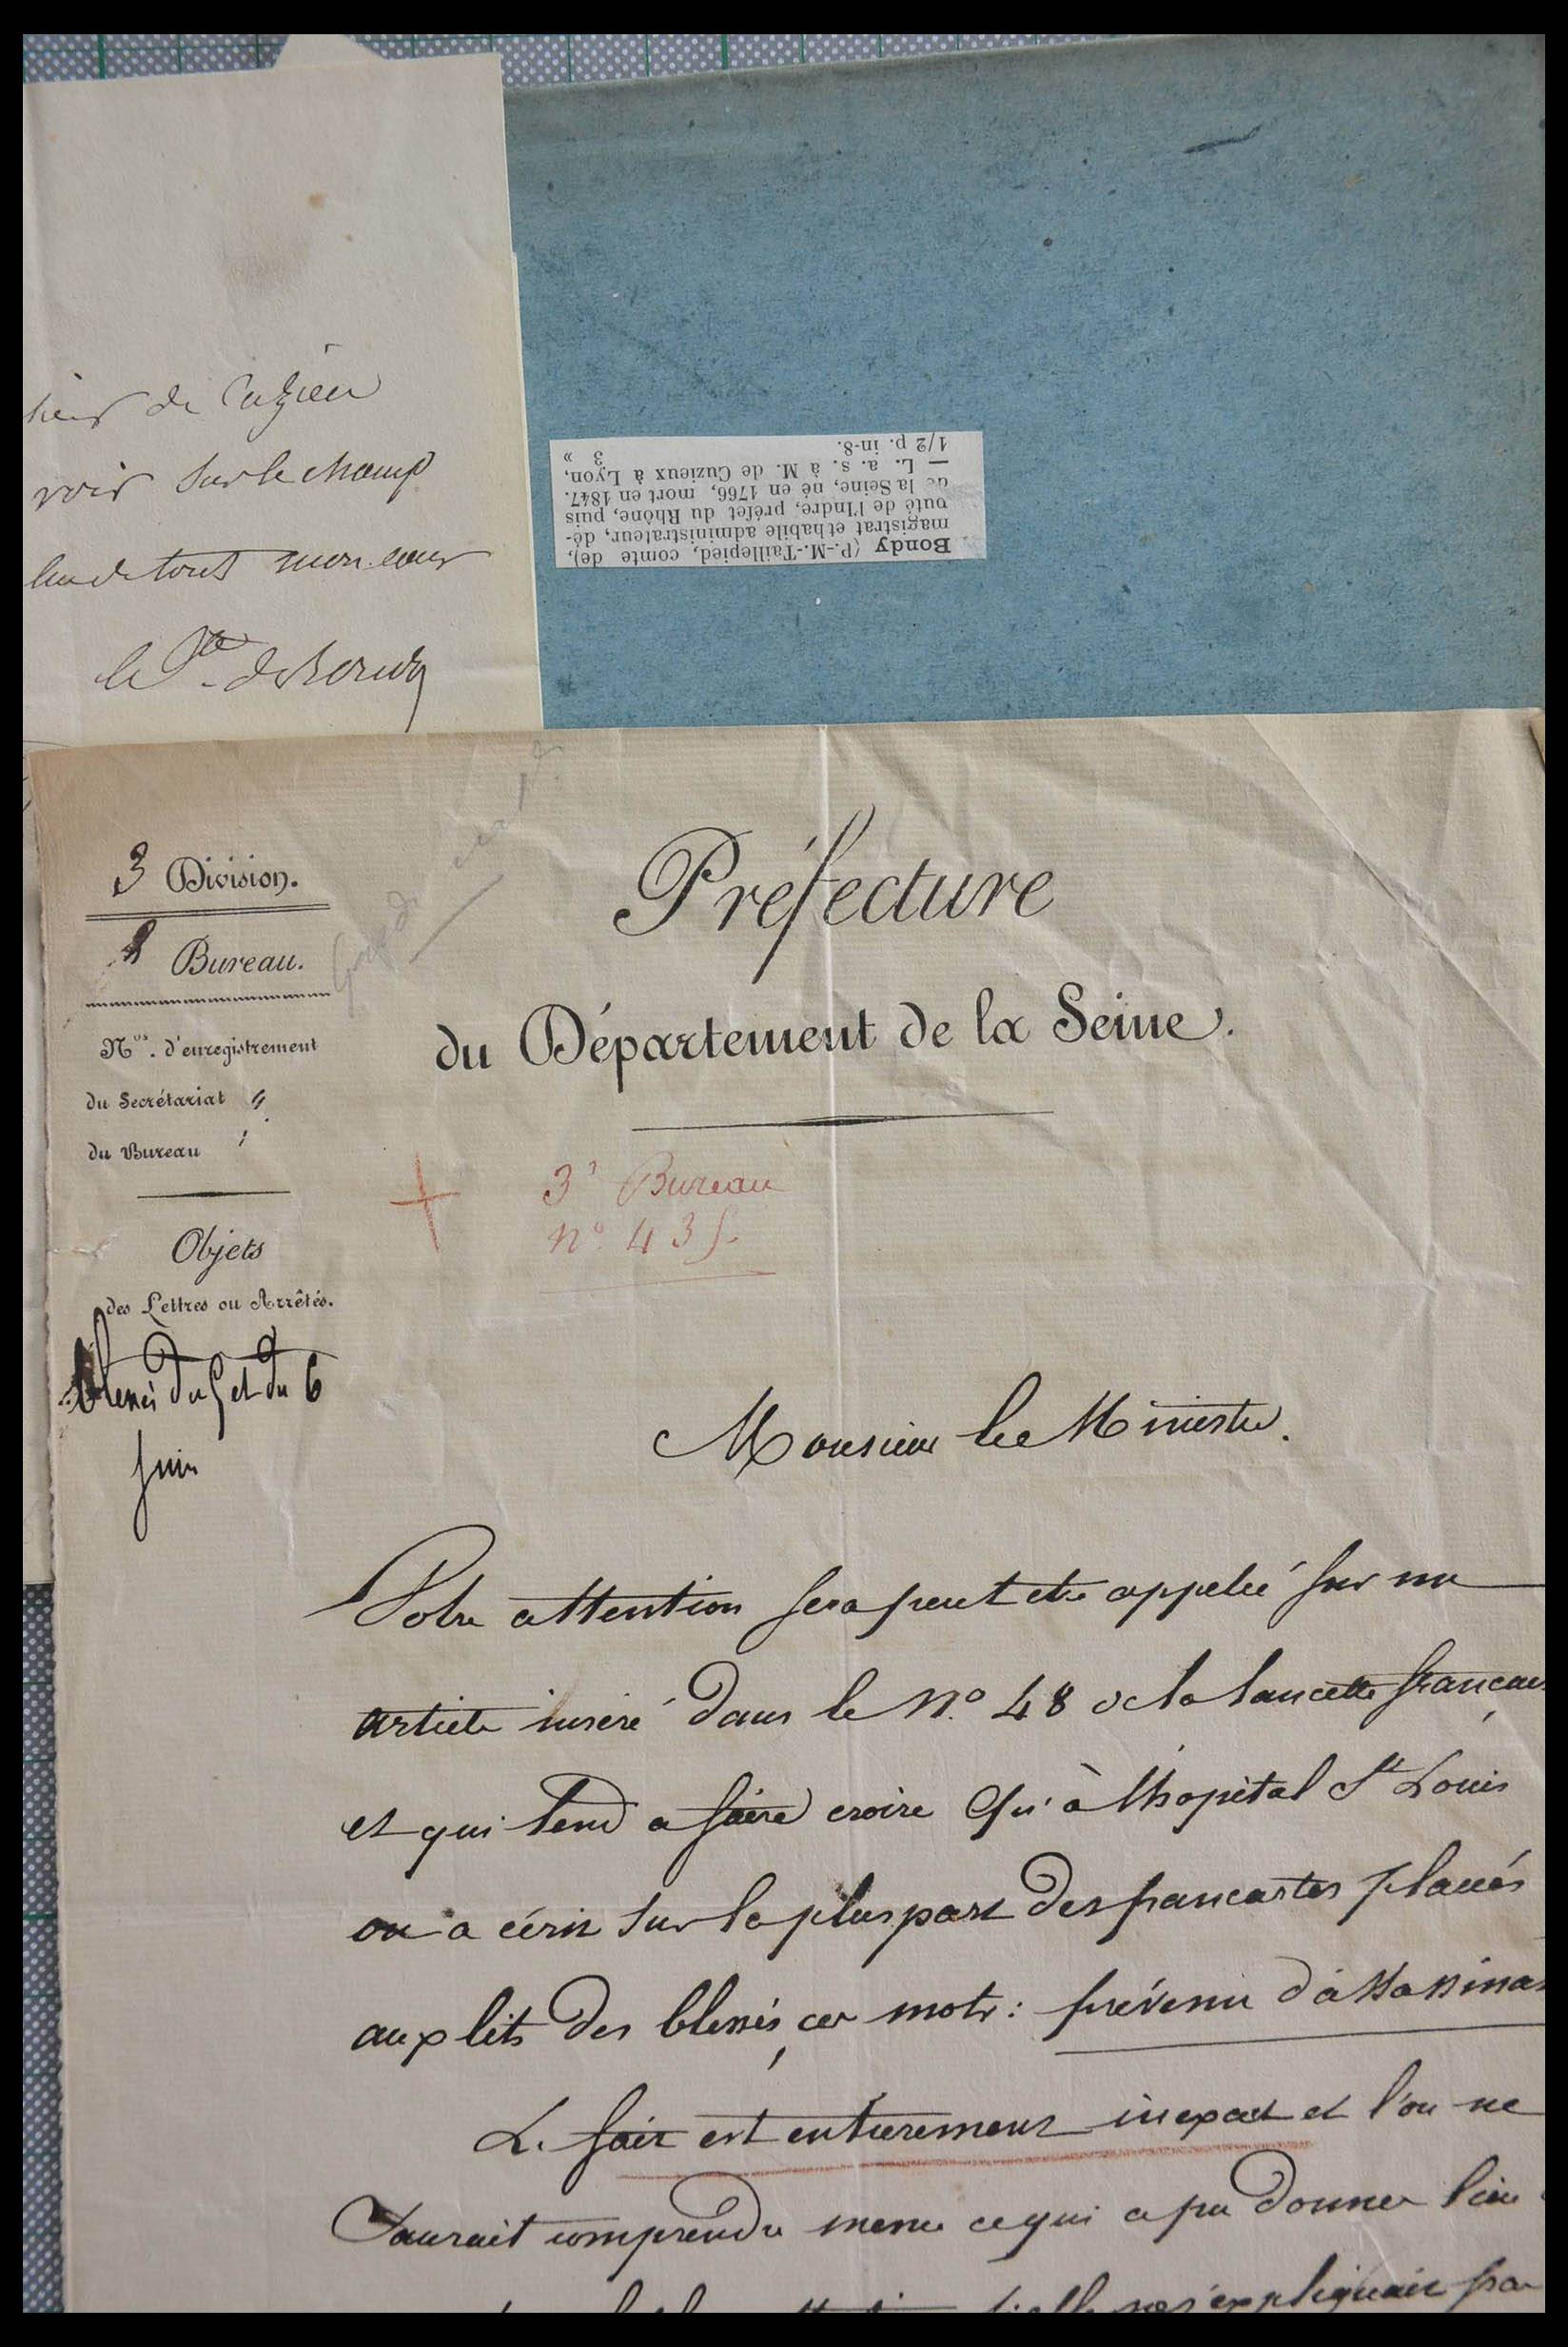 de Cuzieu
voir sur le champ
de tout mon cœur
le Cte de Bondy
Bondy (P.-M.-Taillepied, comte de),
magistrat et habile administrateur, dé-
puté de l'Indre, préfet du Rhône, puis
de la Seine, né en 1766, mort en 1847.
— L. a. s. à M. de Cuzieux à Lyon,
1/2 p. in-8. 3 »
3 Division.
Bureau.
Nos. d'enregistrement
du Secrétariat
du Bureau
Objets
des Lettres ou Arrêtés.
blessés du 5 et du 6
juin
Préfecture
du Département de la Seine.
3e Bureau
n° 435.
Monsieur le Ministre.
Votre attention sera peut etre appelée sur un
article inséré dans le N.° 48 de la lancette française
et qui tend a faire croire qu'à l'hopital St Louis
on a écrit sur la plus part des pancartes placées
aux lits des blessés, ces mots: prévenu d'assassinat
Le fait est entierement inexact et l'on ne
saurait comprendre meme ce qui a pu donner lieu
s'expliquait par